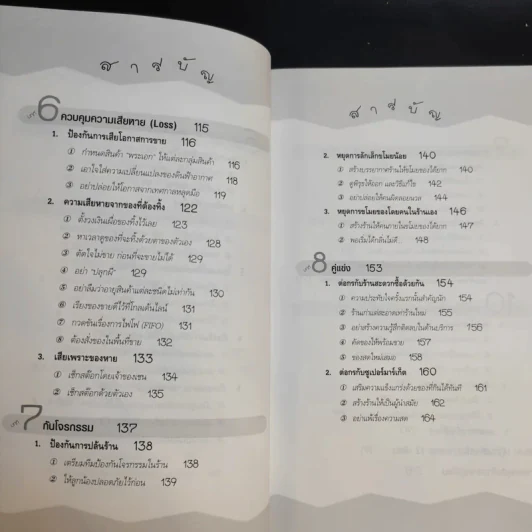 สารบัญ
6 ควบคุมความเสียหาย (Loss) 115
1. ป้องกันการเสียโอกาสการขาย 116
① กำหนดสินค้า "พระเอก" ให้แต่ละกลุ่มสินค้า 116
② เอาใจใส่ความเปลี่ยนแปลงของดินฟ้าอากาศ 118
③ อย่าปล่อยให้โอกาสจากเทศกาลหลุดมือ 119
2. ความเสียหายจากของที่ต้องทิ้ง 122
① ตั้งวงเงินเผื่อของทิ้งไว้เลย 123
② หาเวลาดูของที่จะทิ้งด้วยตาของตัวเอง 128
③ ตัดใจไม่ขาย ก่อนที่จะขายไม่ได้ 129
④ อย่า "ปลุกผี" 129
⑤ อย่าลืมว่าอายุสินค้าแต่ละชนิดไม่เท่ากัน 130
⑥ เรียงของขายดีไว้ที่โกลเด้นไลน์ 131
⑦ กวดขันเรื่องการไฟโฟ (FIFO) 131
⑧ ต้องสั่งของในพื้นที่ขาย 132
3. เสียเพราะของหาย 133
① เช็กสต๊อกโดยเจ้าของเซน 134
② เช็กสต๊อกด้วยตัวเอง 135
7 กันโจรกรรม 137
1. ป้องกันการปล้นร้าน 138
① เตรียมทีมป้องกันโจรกรรมในร้าน 138
② ให้ลูกน้องปลอดภัยไว้ก่อน 139
สารบัญ
2. หยุดการลักเล็กขโมยน้อย 140
① สร้างบรรยากาศร้านให้ขโมยของได้ยาก 140
② ดูพิรุธให้ออก และวิธีแก้ไข 142
③ อย่าปล่อยให้คนผิดลอยนวล 144
3. หยุดการขโมยของโดยคนในร้านเอง 146
① สร้างร้านให้คนภายในขโมยของได้ยาก 147
② พอเริ่มได้กลิ่นไม่ดี... 148
8 คู่แข่ง 153
1. ต่อกรกับร้านสะดวกซื้อด้วยกัน 154
① ความประทับใจครั้งแรกนั้นสำคัญนัก 154
② ร้านเก่าแต่สะอาดเอาร้านใหม่ 155
③ อย่าสร้างความรู้สึกติดลบในด้านบริการ 156
④ คัดของให้พร้อมขาย 157
⑤ ของสดใหม่เสมอ 158
2. ต่อกรกับซูเปอร์มาร์เก็ต 160
① เสริมความแข็งแกร่งด้วยของที่กินได้ทันที 161
② สร้างร้านให้เป็นผู้นำสมัย 162
③ อย่าแพ้เรื่องความสด 164